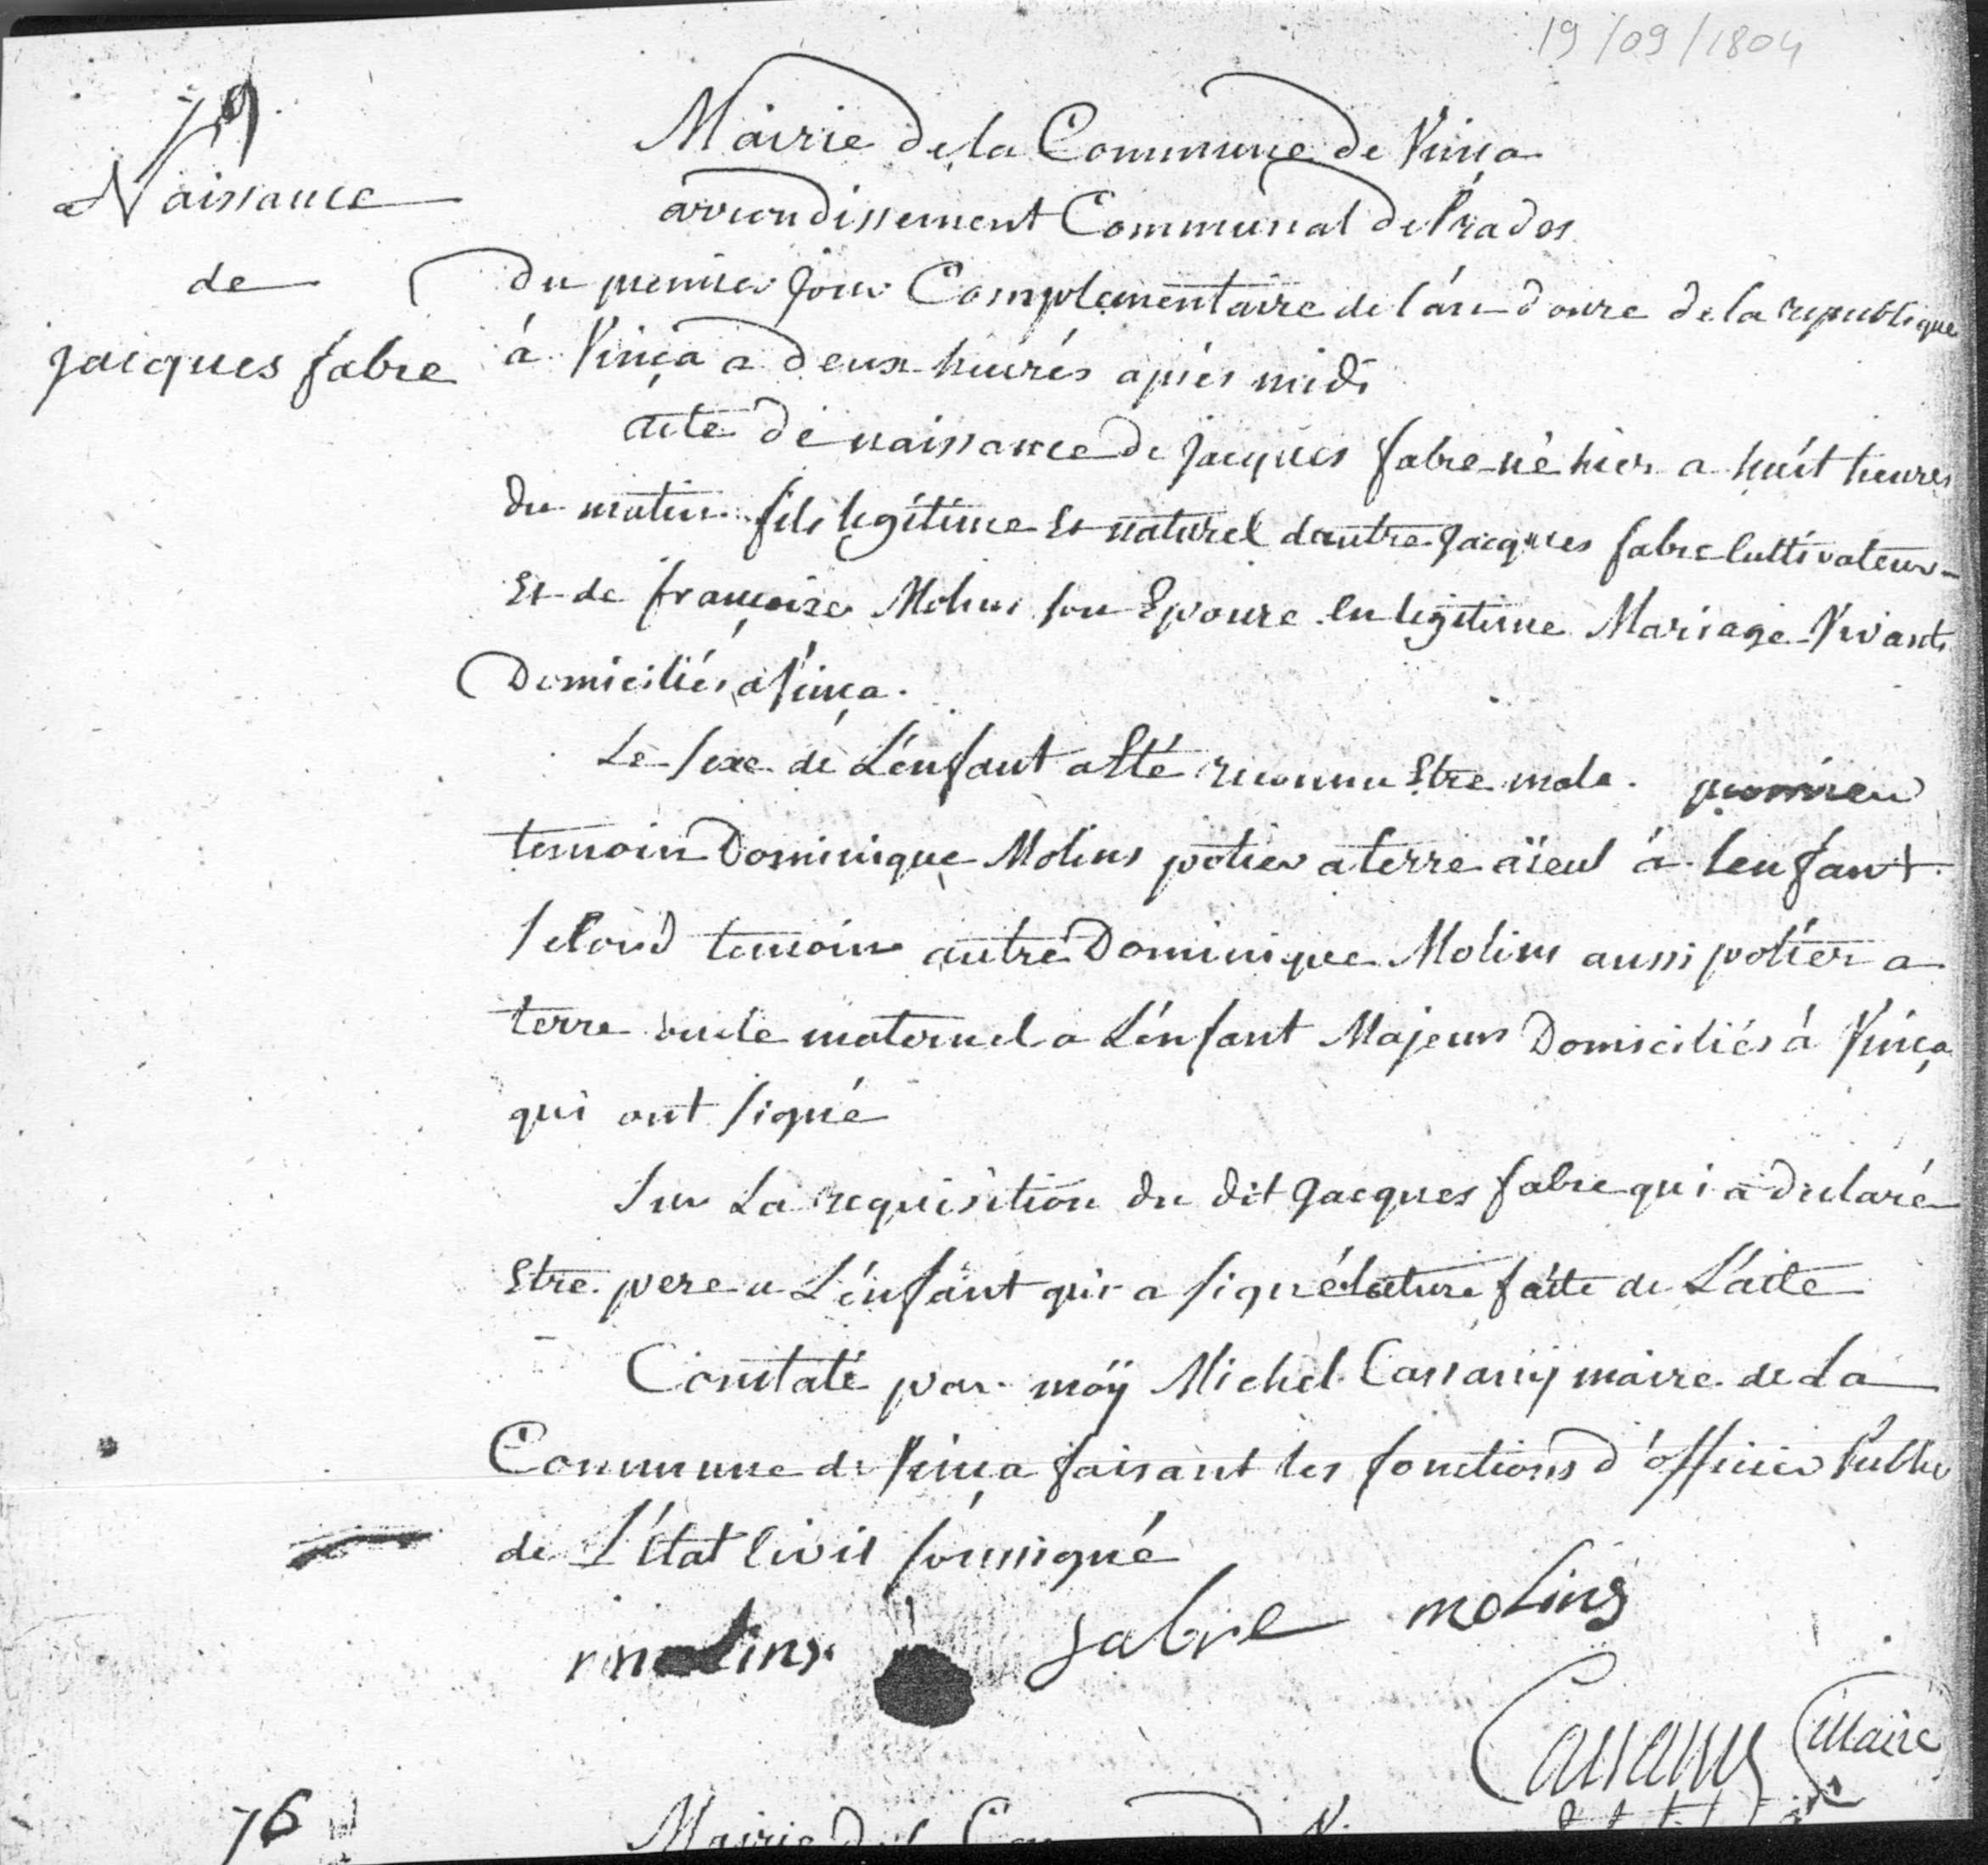 19/09/1804
Mairie de la Commune de Vinça
arrondissement Communal de Prades
Naissance
de
jacques fabre
du premier Jour Complementaire de l'an douze de la republique
à Vinça a deux heurés aprés midi
acte de naissance de Jacques fabre né hier a huit heures
du matin fils legitime Et naturel dautre Jacques fabre Cultivateur
Et de françoise Molins son Epouse en legitime Mariage Vivants
Domiciliés à Vinça.
Le sexe de L'enfant a Eté reconnu Etre male. premier
temoin Dominique Molins potier a terre aïeul à lenfant
second temoin autre Dominique Molins aussi potier a
terre oncle maternel a L'enfant Majeurs Domiciliés à Vinça
qui ont signé
Sur La requisition du dit Jacques fabre qui a declaré
Etre pere a L'enfant qui a signé lecture faite de L'acte
Constaté par moÿ Michel Cassany maire de La
Commune de Vinça faisant les fonctions d'officier Public
de L'état Civil soussigné
molins fabre molins
Cassany Maire
76
Mairie de la Com